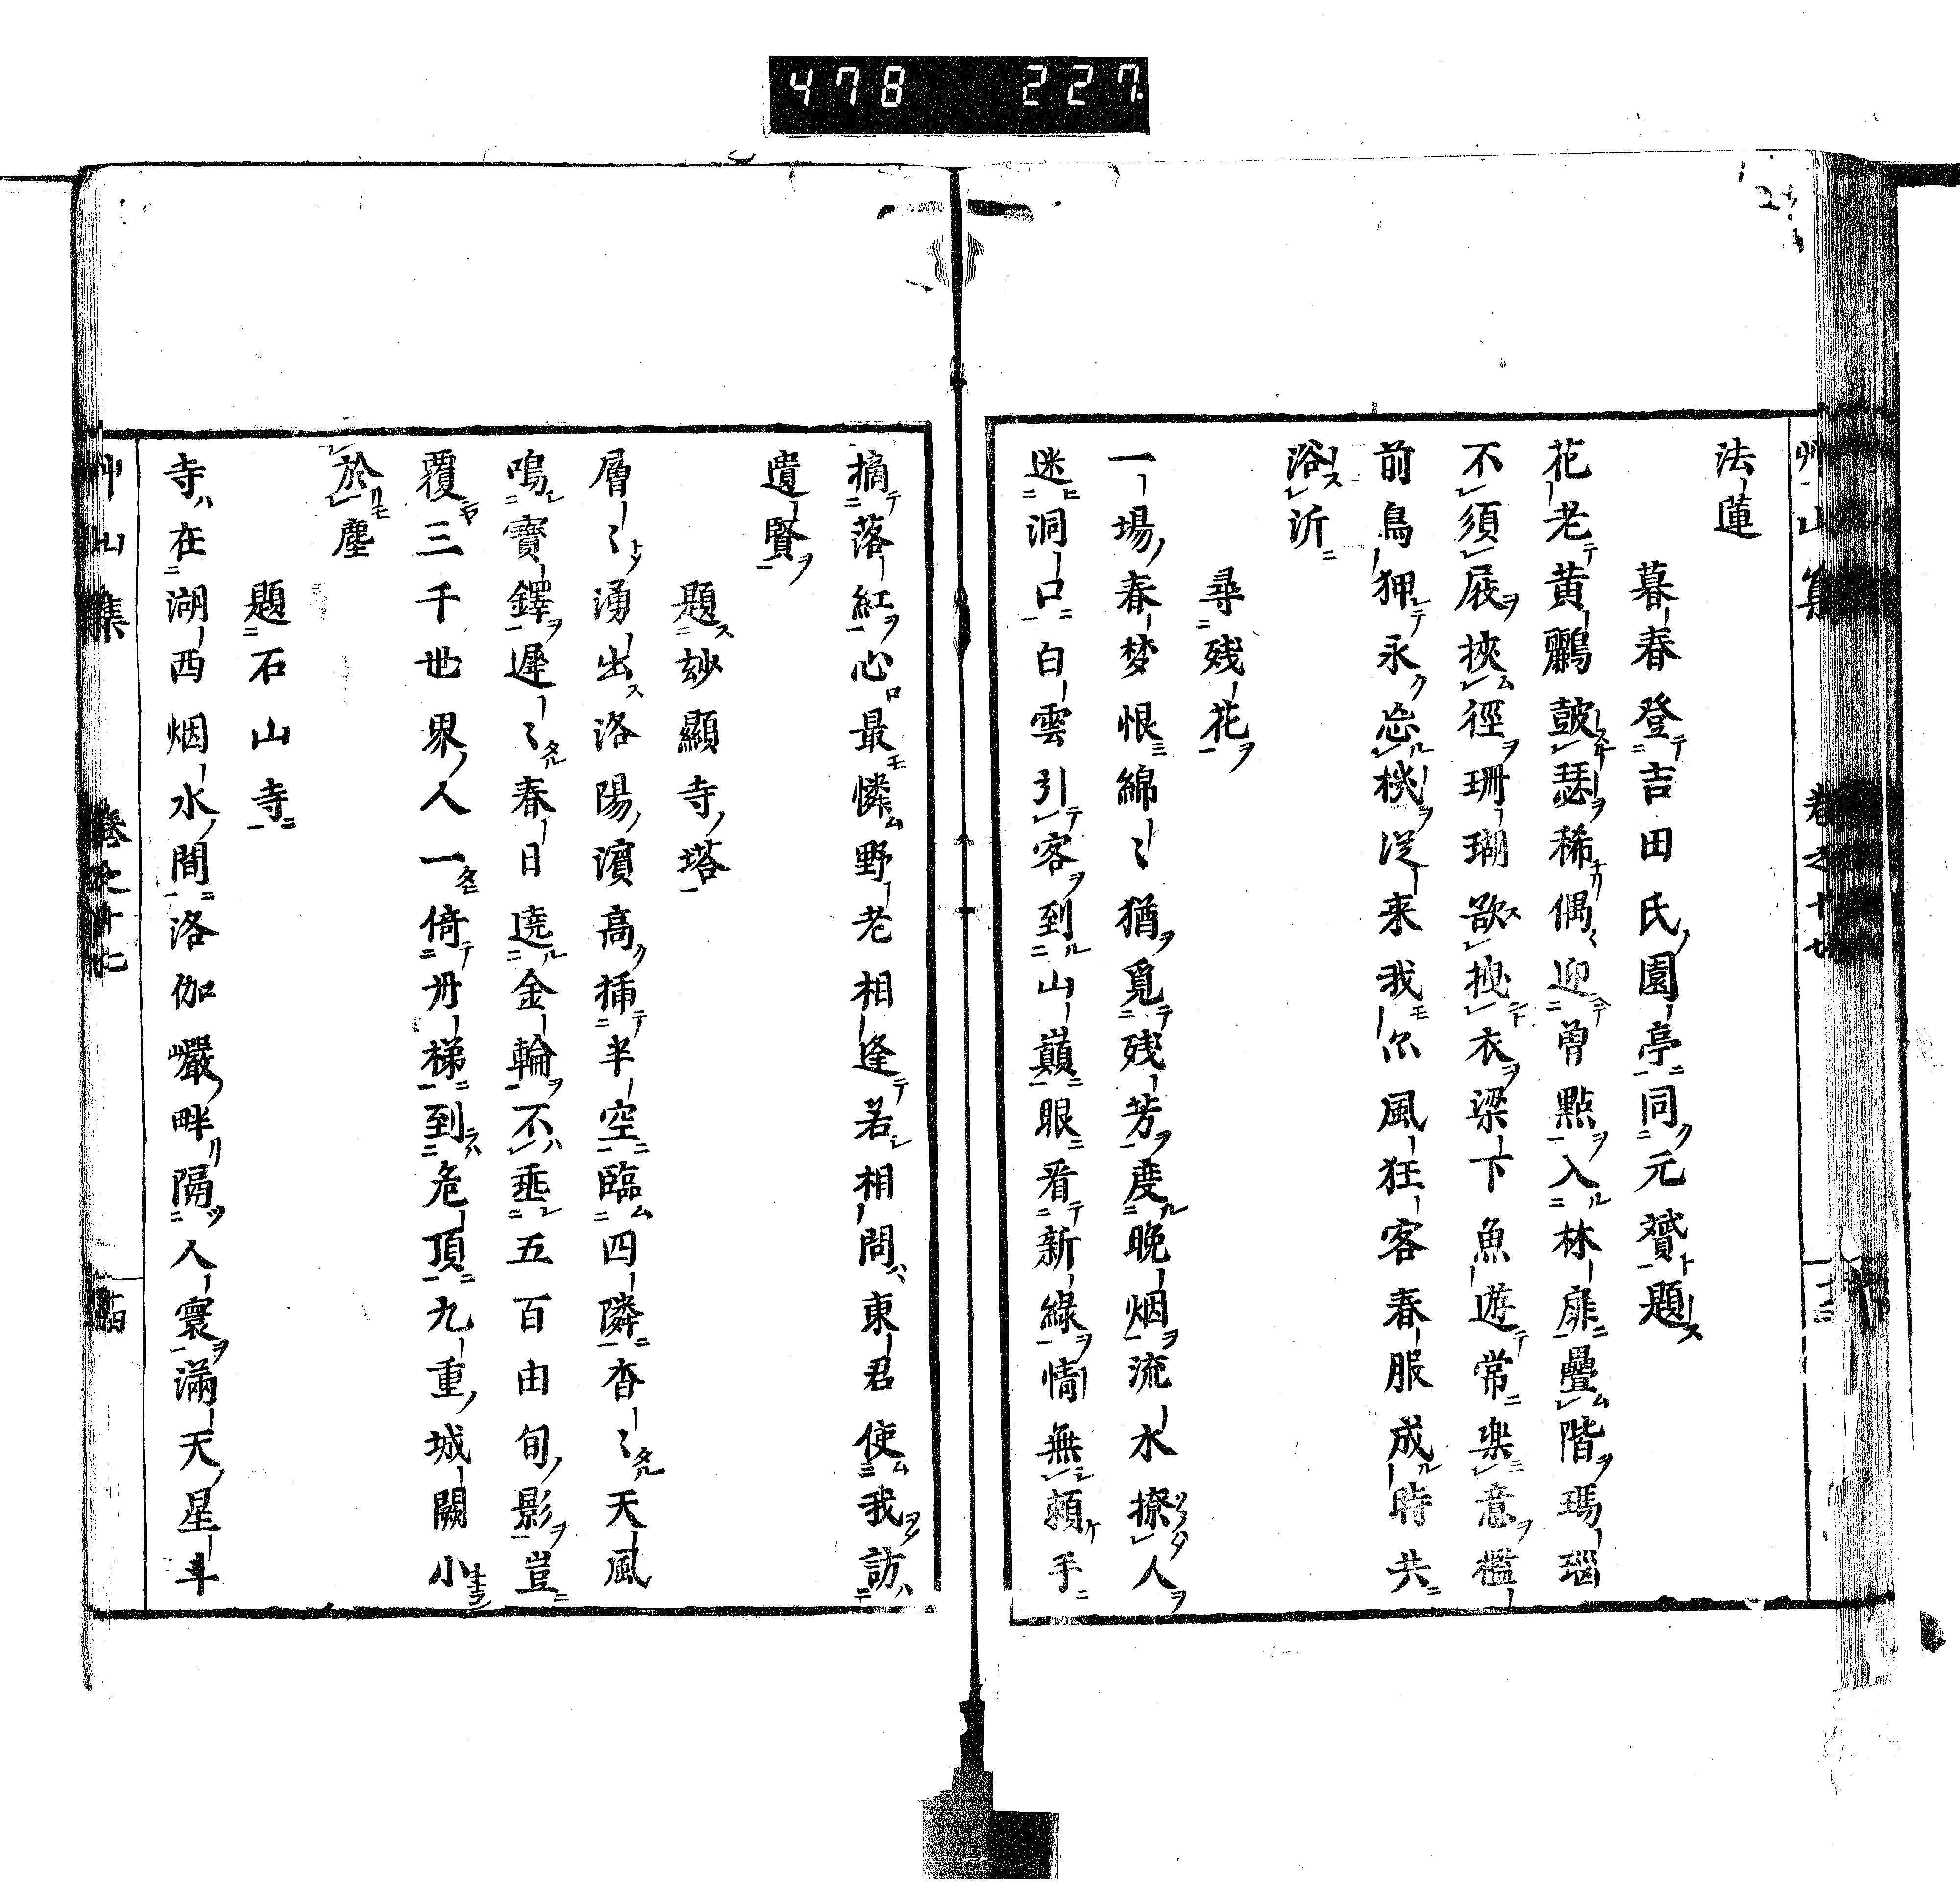 478 227
艸山集 卷之十七 十三
法蓮
暮春登吉田氏園亭同元贇題
花老黄鸝皷瑟稀偶〻迎曽點入林扉疊階瑪瑙
不須屐挾徑珊瑚欲拽衣梁下魚遊常樂意檻
前鳥狎永忘機從来我尓風狂客春服成時共
浴沂
尋残花
一場春梦恨綿〻猶覓残芳度晩烟流水撩人
迷洞口白雲引客到山巔眼看新綠情無頼手
摘落紅心最憐野老相逢若相問東君使我訪
遺賢
題玅顯寺塔
層〻湧出洛陽濱高插半空臨四隣杳〻天風
鳴寶鐸遲〻春日遶金輪不垂五百由旬影豈
覆三千世界人一倚丹梯到危頂九重城闕小
於塵
題石山寺
寺在湖西烟水間洛伽巖畔隔人寰滿天星斗
艸山集 卷之十七 十四